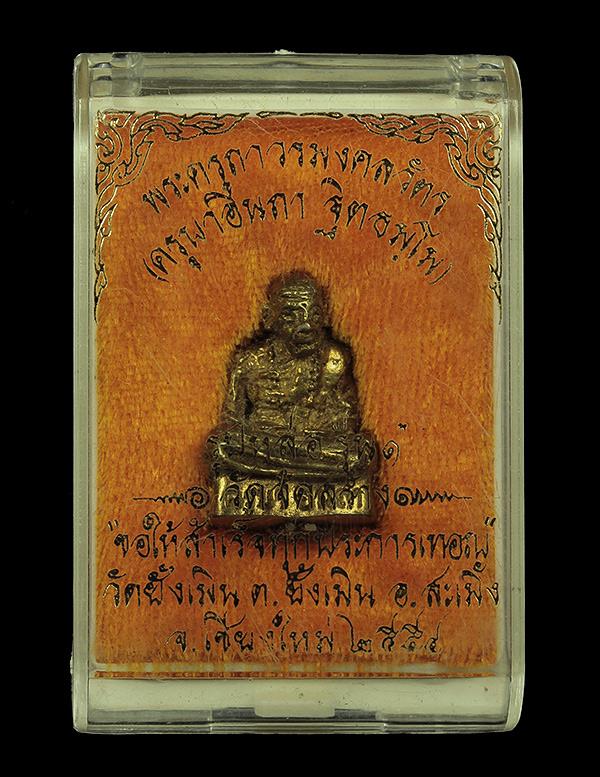 พระครูถาวรมงคลวัตร
(ครูบาอินถา ฐิตธมฺโม)
รูปหล่อ
"ขอให้สำเร็จทุกประการเทอญ"
วัดยั้งเมิน ต. ยั้งเมิน อ. สะเมิง
จ. เชียงใหม่ ๒๕๕๔